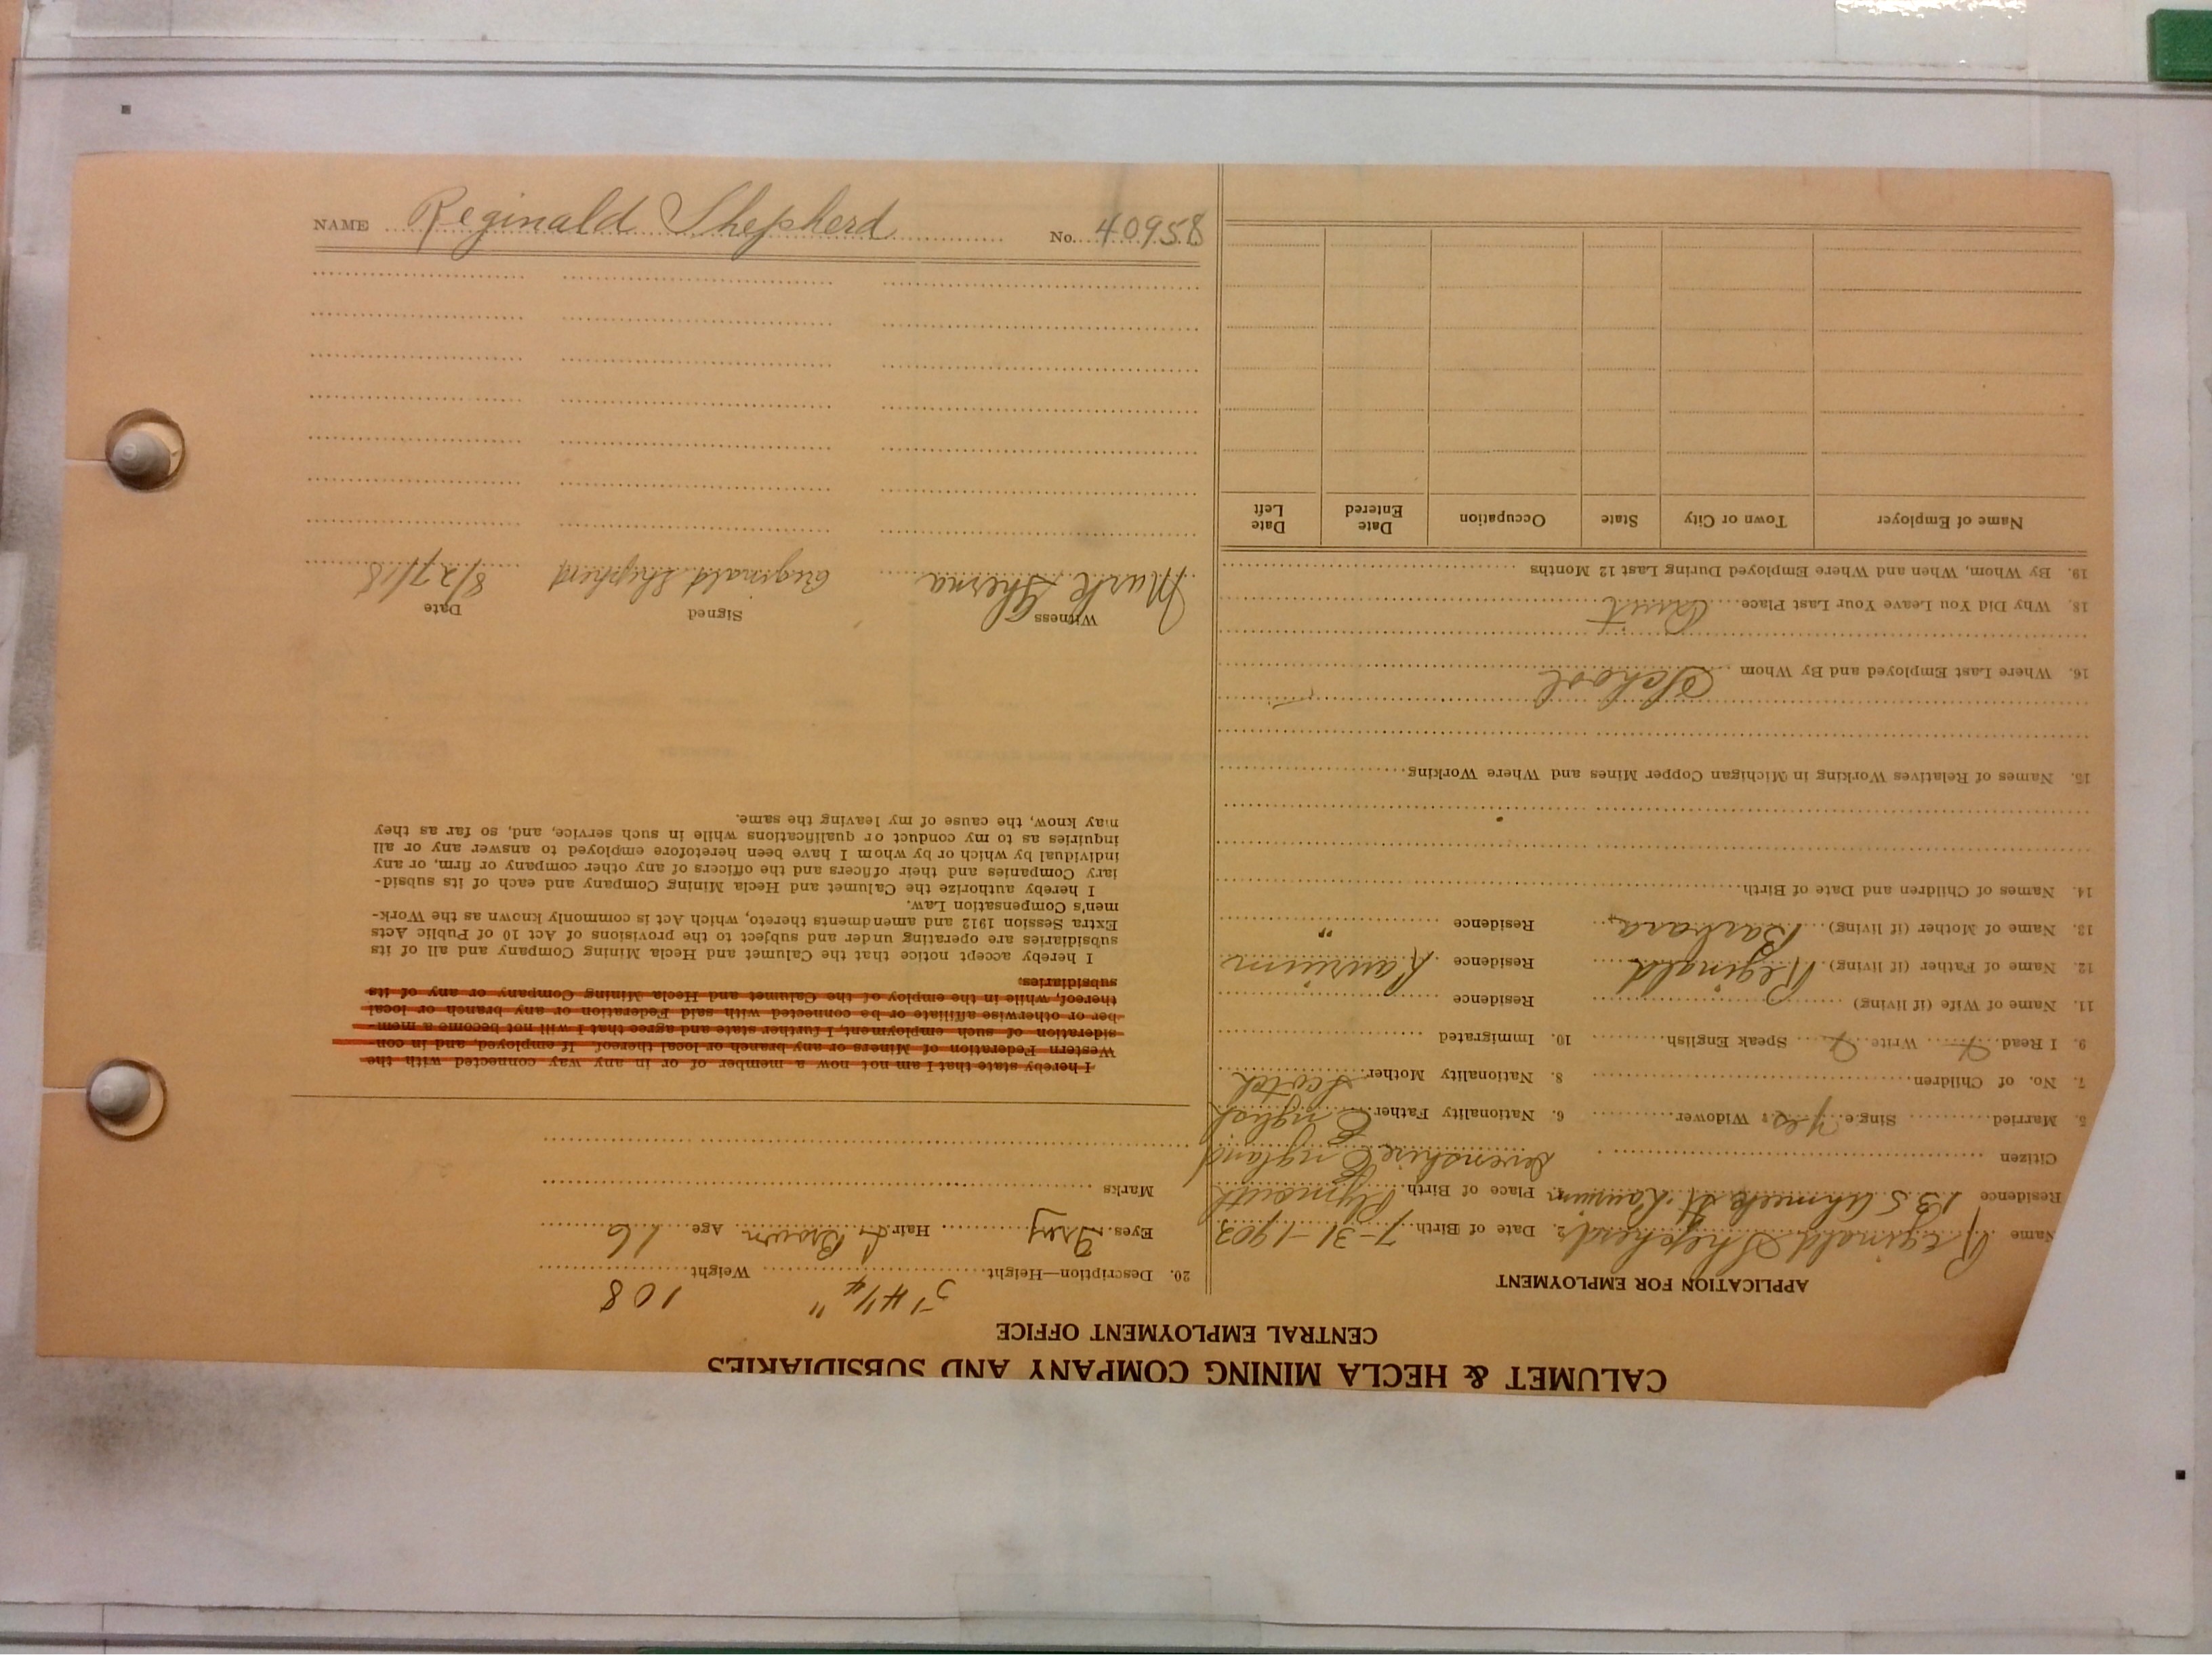 NAME Reginald Shepherd No. 40958
CALUMET & HECLA MINING COMPANY AND SUBSIDIARIES
CENTRAL EMPLOYMENT OFFICE
APPLICATION FOR EMPLOYMENT
Name Reginald Shepherd 2. Date of Birth 7-31-1903
Residence 135 Ahmeek St Laurium Place of Birth Plymouth
Citizen Devonshire England
5. Married Single Yes Widower 6. Nationality Father English
7. No. of Children 8. Nationality Mother Scotch
9. I Read Write Speak English 10. Immigrated
11. Name of Wife (if living) Residence
12. Name of Father (if living) Reginald Residence Laurium
13. Name of Mother (if living) Barbara Residence "
14. Names of Children and Date of Birth
15. Names of Relatives Working in Michigan Copper Mines and Where Working
School
16. Where Last Employed and By Whom
18. Why Did You Leave Your Last Place Quit
19. By Whom, When and Where Employed During Last 12 Months
Name of Employer Town or City State Occupation Date Entered Date Left
5' 4 1/4" 108
20. Description—Height Weight
Eyes Grey Hair L Brown Age 16
Marks
I hereby state that I am not now a member of or in any way connected with the
Western Federation of Miners or any branch or local thereof. If employed, and in con-
sideration of such employment, I further state and agree that I will not become a mem-
ber or otherwise affiliate or be connected with said Federation or any branch or local
thereof, while in the employ of the Calumet and Hecla Mining Company or any of its
subsidiaries.
I hereby accept notice that the Calumet and Hecla Mining Company and all of its
subsidiaries are operating under and subject to the provisions of Act 10 of Public Acts
Extra Session 1912 and amendments thereto, which Act is commonly known as the Work-
men's Compensation Law.
I hereby authorize the Calumet and Hecla Mining Company and each of its subsid-
iary Companies and their officers and the officers of any other company or firm, or any
individual by which or by whom I have been heretofore employed to answer any or all
inquiries as to my conduct or qualifications while in such service, and, so far as they
may know, the cause of my leaving the same.
Witness Signed Date
Reginald Shepherd 8/27/18